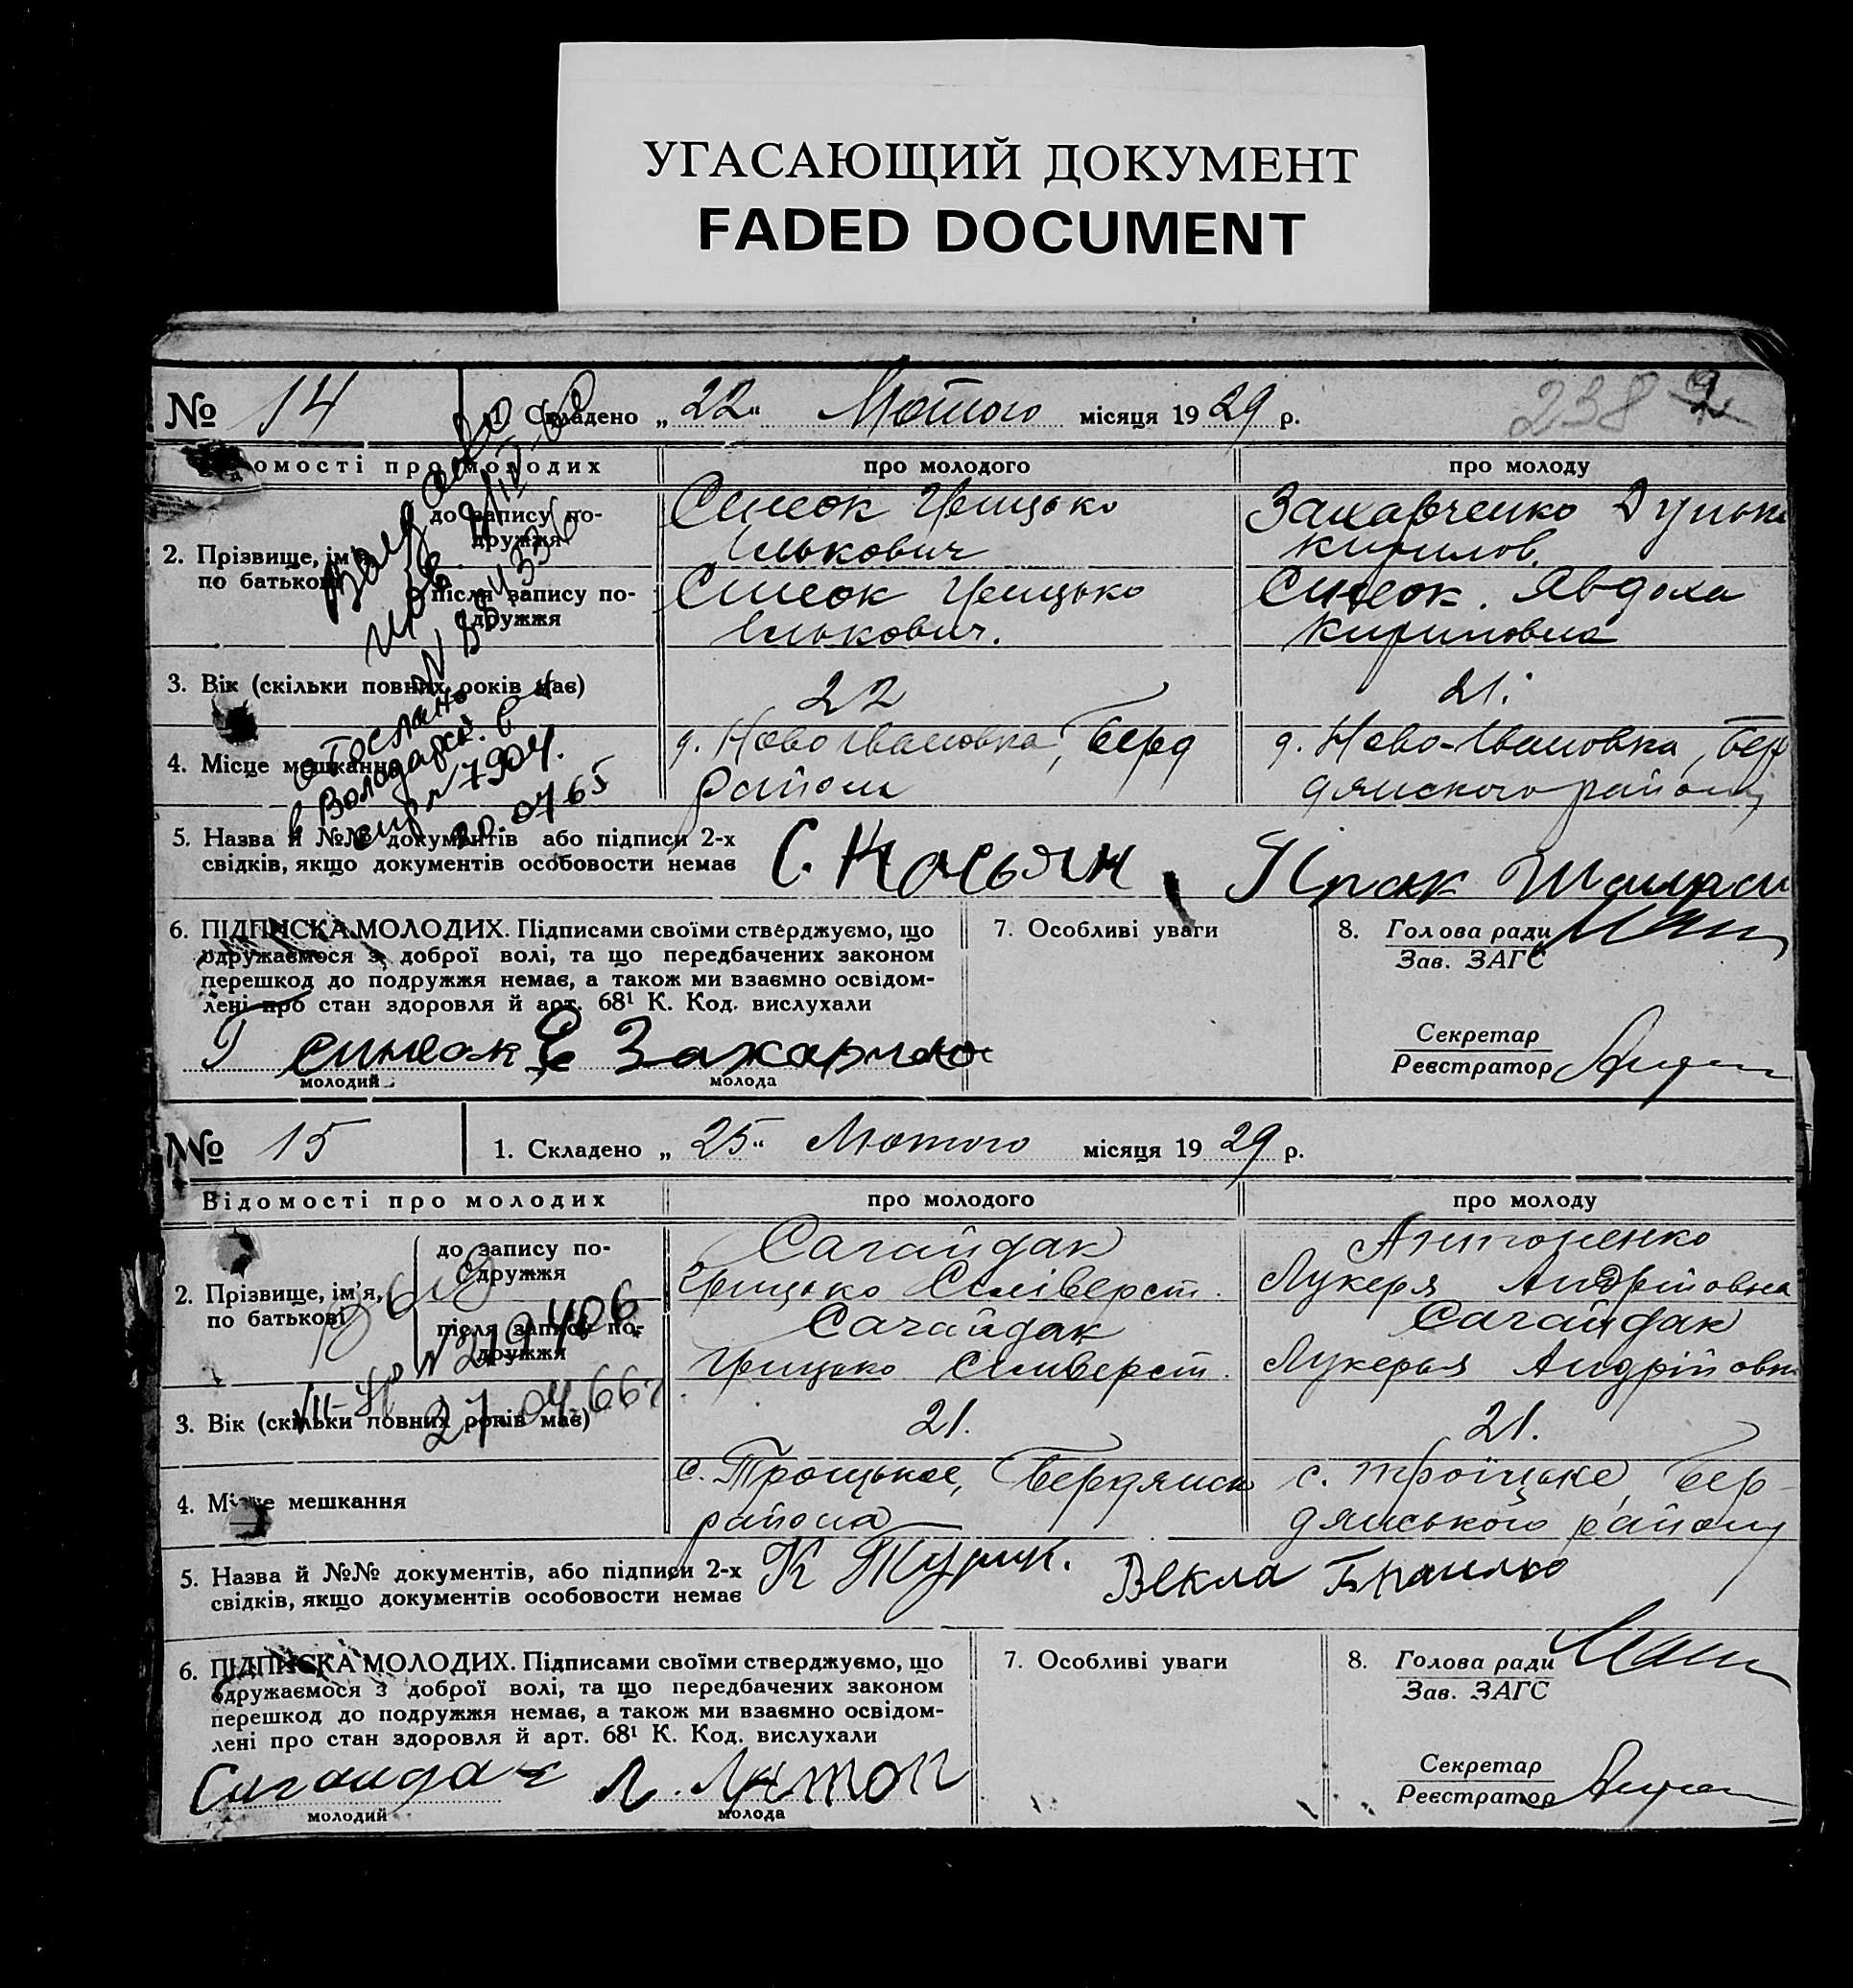 УГАСАЮЩИЙ ДОКУМЕНТ
FADED DOCUMENT
238
№ 14
1. Складено „22“ Лютого місяця 1929 р.
Відомості про молодих
про молодого
про молоду
2. Прізвище, ім'я, по батькові
до запису по-
дружжя
Синеок Грицько
Ількович
Захарченко Дунька
Кирилов.
після запису по-
дружжя
Синеок Грицько
Ількович.
Синеок. Явдоха
Кириловна
3. Вік (скільки повних років має)
22
21.
4. Місце мешкання
д. Ново Івановка, Берд
району
д. Ново-Івановка, Бер
дянского району
Послано
в Володарск.
№ 7904.
20.0765
5. Назва й №№ документів або підписи 2-х
свідків, якщо документів особовости немає
С. Касьян,
6. ПІДПИСКА МОЛОДИХ. Підписами своїми стверджуємо, що
одружаємося з доброї волі, та що передбачених законом
перешкод до подружжя немає, а також ми взаємно освідом-
лені про стан здоровля й арт. 68¹ К. Код. вислухали
Г Синеок Є Захарченко
молодий
молода
7. Особливі уваги
8. Голова ради
Зав. ЗАГС
Секретар
Реєстратор
№ 15
1. Складено „25“ Лютого місяця 1929 р.
Відомості про молодих
про молодого
про молоду
2. Прізвище, ім'я,
по батькові
до запису по-
дружжя
Сагайдак
Грицько Селіверст.
Антоненко
Лукерья Андрійовна
після запису по-
дружжя
Сагайдак
Грицько Селиверст.
Сагайдак
Лукерья Андрійовн
№ 219406
27.04.66г
3. Вік (скільки повних років має)
21.
21.
4. Місце мешкання
с. Троицькое, Бердянск
района
с. Троїцьке, Бер-
дянського району
5. Назва й №№ документів, або підписи 2-х
свідків, якщо документів особовости немає
К Журик.
Векла Браилко
6. ПІДПИСКА МОЛОДИХ. Підписами своїми стверджуємо, що
одружаємося з доброї волі, та що передбачених законом
перешкод до подружжя немає, а також ми взаємно освідом-
лені про стан здоровля й арт. 68¹ К. Код. вислухали
Сагайдак Л. Антон
молодий
молода
7. Особливі уваги
8. Голова ради
Зав. ЗАГС
Секретар
Реєстратор